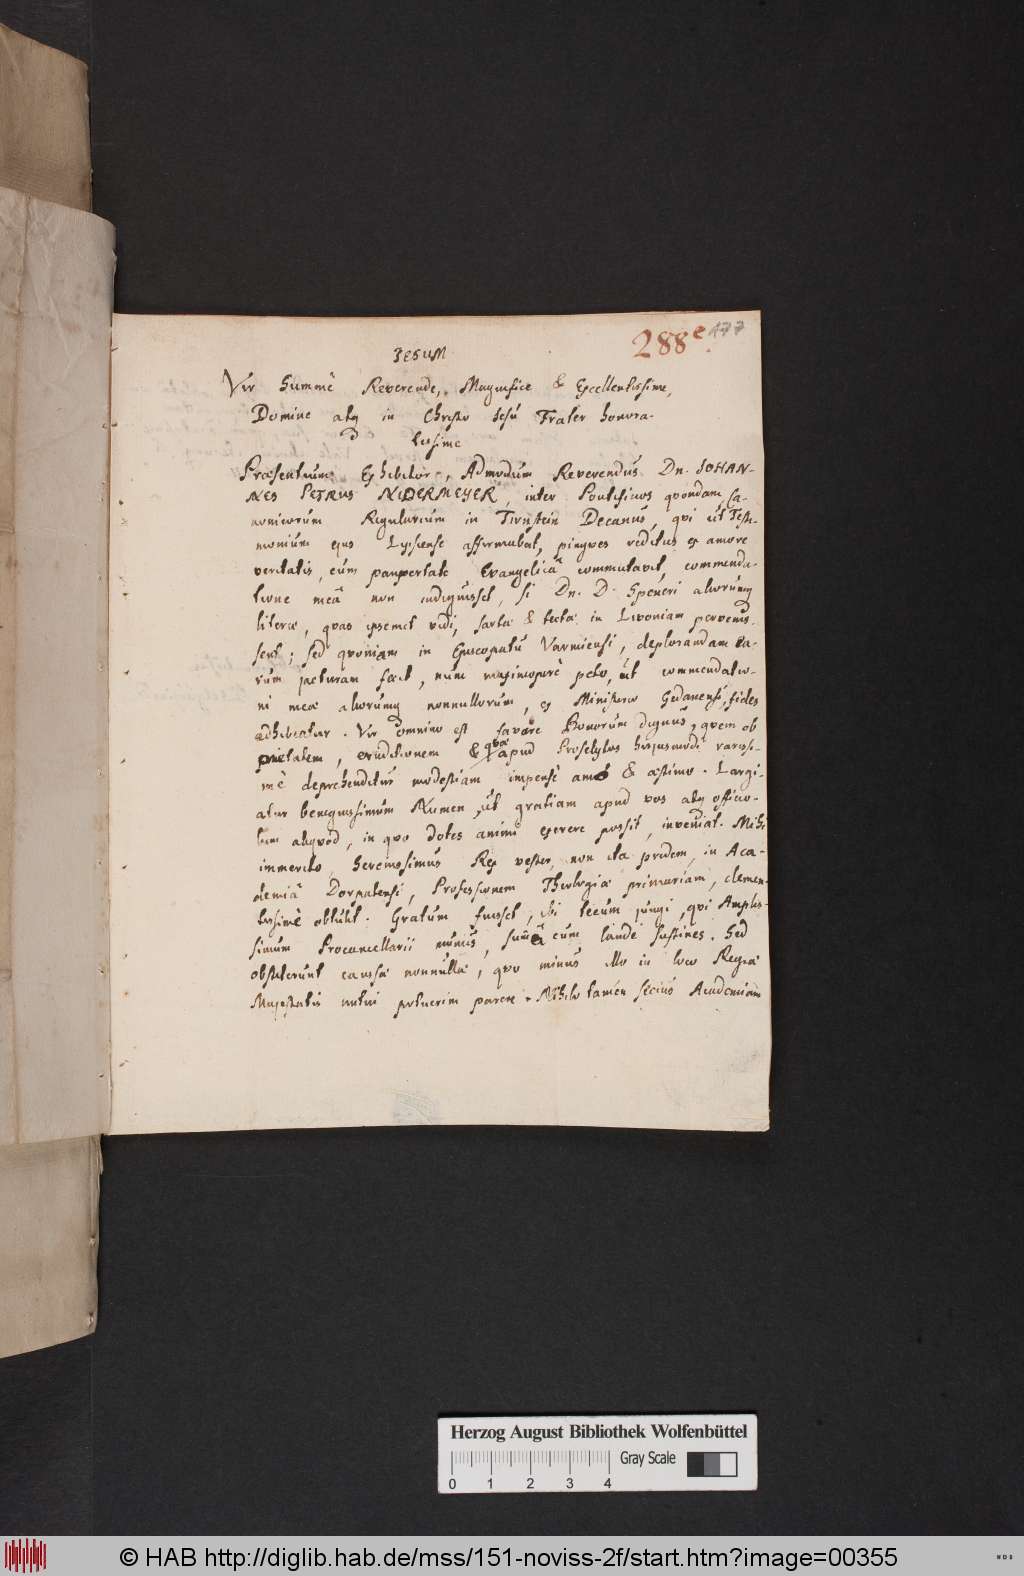 288e 177
JESUM
Vir Summè Reverende, Magnifice & Excellentissime,
Domine atq in Christo Jesu Frater honora-
tissime
Præsentium Exhibitor, Admodum Reverendus Dn. JOHAN-
NES PETRUS NIDERMEYER, inter Pontificios quondam Ca-
nonicorum Regularium in Tirnstein Decanus, qvi ut Testi-
monium ejus Lipsiense affirmabat, pingves reditus ex amore
veritatis, cum paupertate Evangelicâ commutavit, commenda-
tione meâ non indiguisset, si Dn. D. Speneri aliorumq
literæ, qvas ipsemet vidi, sartæ & tectæ in Livoniam pervenis-
sent; sed qvoniam in Episcopatu Varmiensi, deplorandam ea-
rum jacturam fecit, num maximoperè peto, ut commendatio-
ni meæ aliorumq nonnullorum, ex Ministerio Gedanensi, fides
adhibeatur. Vir omnino est favore Bonorum dignus, qvem ob
pietatem, eruditionem & qvæ apud Proselytos hujusmodi rariss-
mè deprehenditur modestiam impensè amo & æstimo. Largi-
atur benignissimum Numen, ut gratiam apud vos atq officio-
lum aliqvod, in qvo dotes animi exerere possit, inveniat. Mihi
immerito, Serenissimus Rex vester, non ita pridem, in Aca-
demiâ Dorpatensi, Professionem Theologiæ primariam, clemen-
tissimè obtulit. Gratum fuisset, ibi tecum jungi, qvi Amplis-
simum Procancellarii munus, summâ cum laude sustines. Sed
obstiterunt caussæ nonnullæ, qvo minus illo in loco Regiæ
Majestatis nutui potuerim parere. Nihilo tamen secius Academiam
Herzog August Bibliothek Wolfenbüttel
Gray Scale
0 1 2 3 4
© HAB http://diglib.hab.de/mss/151-noviss-2f/start.htm?image=00355